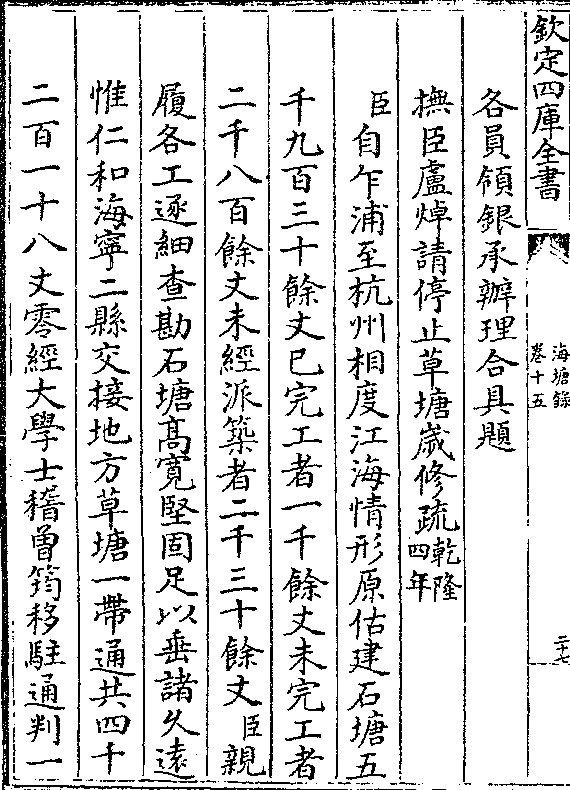 欽定四庫全書
海塘錄
卷十五
二十七
各員領銀承辦理合具題
撫臣盧焯請停止草塘歲修疏乾隆四年
臣自乍浦至杭州相度江海情形原估建石塘五
千九百三十餘丈已完工者一千餘丈未完工者
二千八百餘丈未經派築者二千三十餘丈臣親
履各工逐細查勘石塘髙寛堅固足以垂諸久遠
惟仁和海寧二縣交接地方草塘一帶通共四千
二百一十八丈零經大學士稽曾筠移駐通判一